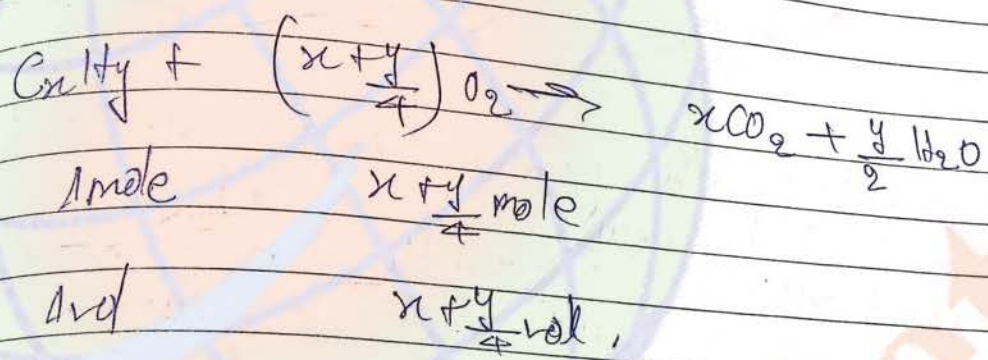 CxHy + (x + y/4) O₂ → xCO₂ + y/2 H₂O
1 mole x + y/4 mole
1 vol x + y/4 vol.